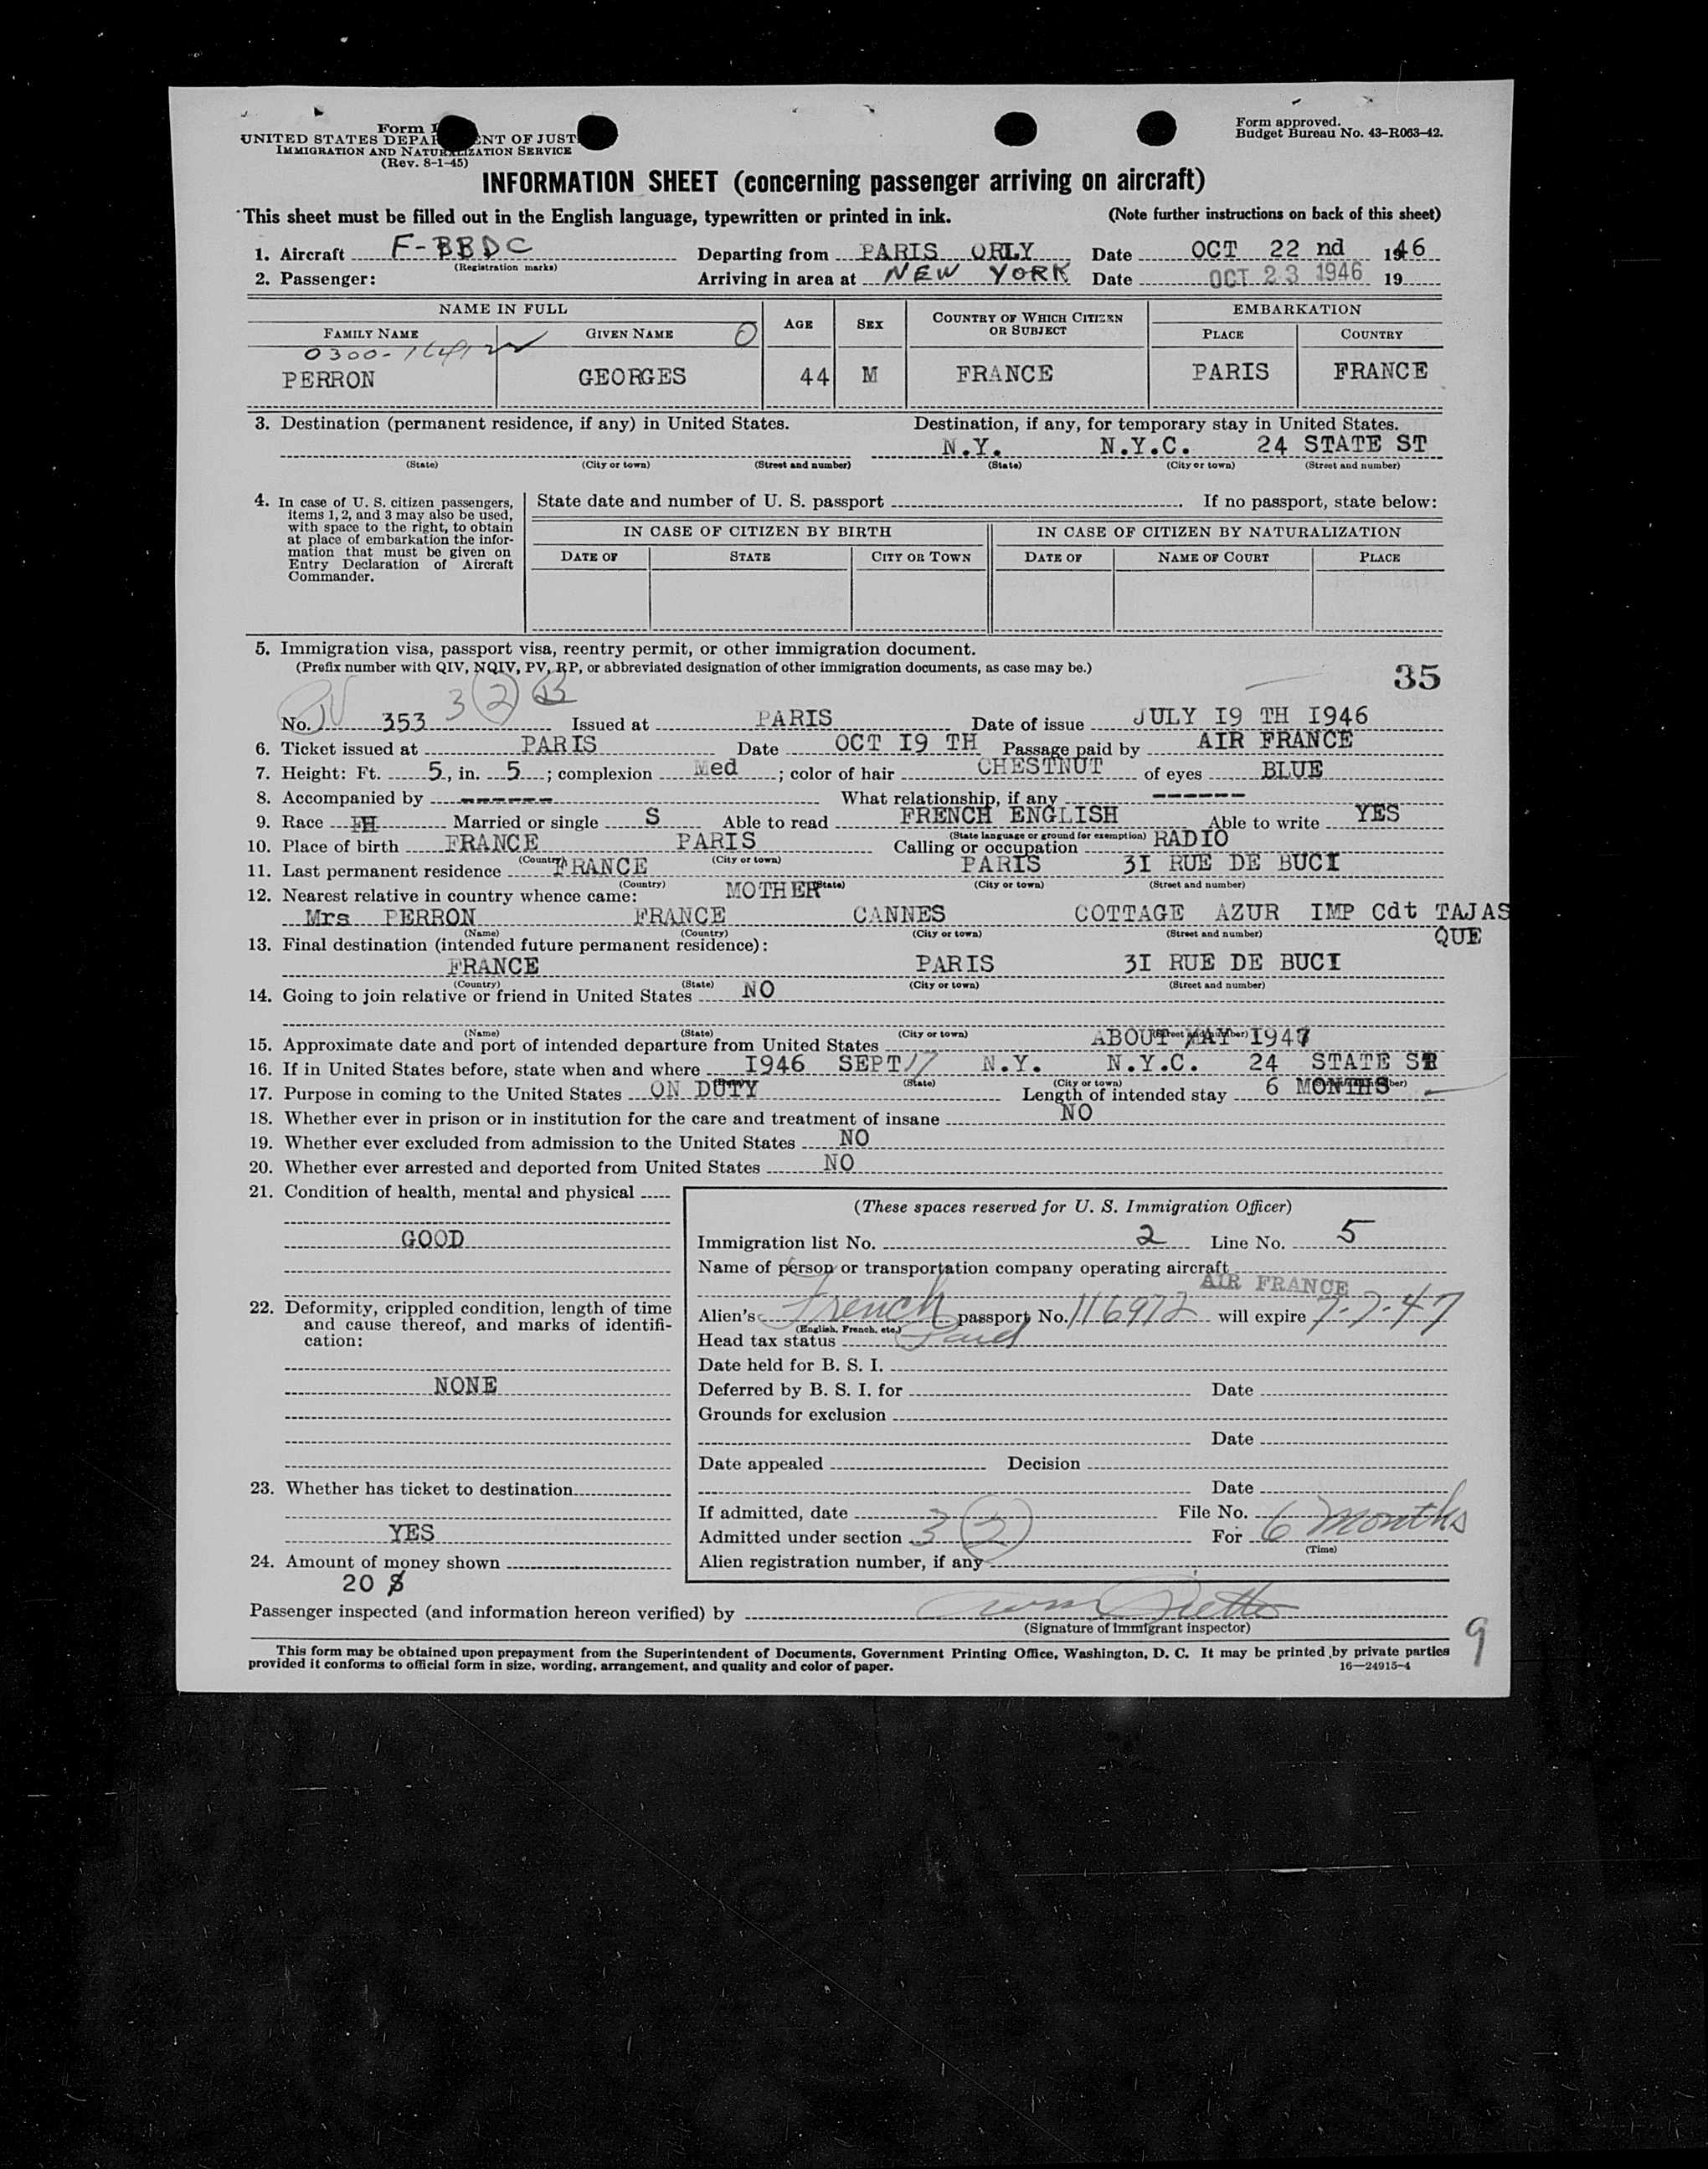 Form approved.
Budget Bureau No. 43-R063-42.
Form
UNITED STATES DEPAR ENT OF JUST
IMMIGRATION AND NATURALIZATION SERVICE
(Rev. 8-1-45)
INFORMATION SHEET (concerning passenger arriving on aircraft)
This sheet must be filled out in the English language, typewritten or printed in ink. (Note further instructions on back of this sheet)
1. Aircraft F-BBDC Departing from PARIS ORLY Date OCT 22 nd 1946
(Registration marks)
2. Passenger: Arriving in area at NEW YORK Date OCT 23 1946 19
NAME IN FULL AGE SEX COUNTRY OF WHICH CITIZEN OR SUBJECT EMBARKATION
FAMILY NAME GIVEN NAME PLACE COUNTRY
0300-
PERRON GEORGES 44 M FRANCE PARIS FRANCE
3. Destination (permanent residence, if any) in United States. Destination, if any, for temporary stay in United States.
N.Y. N.Y.C. 24 STATE ST
(State) (City or town) (Street and number) (State) (City or town) (Street and number)
4. In case of U. S. citizen passengers, items 1, 2, and 3 may also be used, with space to the right, to obtain at place of embarkation the information that must be given on Entry Declaration of Aircraft Commander.
State date and number of U. S. passport If no passport, state below:
IN CASE OF CITIZEN BY BIRTH IN CASE OF CITIZEN BY NATURALIZATION
DATE OF STATE CITY OR TOWN DATE OF NAME OF COURT PLACE
5. Immigration visa, passport visa, reentry permit, or other immigration document.
(Prefix number with QIV, NQIV, PV, RP, or abbreviated designation of other immigration documents, as case may be.)
35
3 (2)
No. PV 353 Issued at PARIS Date of issue JULY I9 TH I946
6. Ticket issued at PARIS Date OCT I9 TH Passage paid by AIR FRANCE
7. Height: Ft. 5, in. 5; complexion Med; color of hair CHESTNUT of eyes BLUE
8. Accompanied by ------ What relationship, if any ------
9. Race FH Married or single S Able to read FRENCH ENGLISH Able to write YES
(State language or ground for exemption)
10. Place of birth FRANCE PARIS Calling or occupation RADIO
(Country) (City or town)
11. Last permanent residence FRANCE PARIS 3I RUE DE BUCI
(Country) (State) (City or town) (Street and number)
12. Nearest relative in country whence came: MOTHER
Mrs PERRON FRANCE CANNES COTTAGE AZUR IMP Cdt TAJAS
QUE
(Name) (Country) (City or town) (Street and number)
13. Final destination (intended future permanent residence):
FRANCE PARIS 3I RUE DE BUCI
(Country) (State) (City or town) (Street and number)
14. Going to join relative or friend in United States NO
(Name) (State) (City or town) (Street and number)
15. Approximate date and port of intended departure from United States ABOUT MAY I947
16. If in United States before, state when and where I946 SEPT 17 N.Y. N.Y.C. 24 STATE ST
(Date) (State) (City or town) (Street and number)
17. Purpose in coming to the United States ON DUTY Length of intended stay 6 MONTHS
18. Whether ever in prison or in institution for the care and treatment of insane NO
19. Whether ever excluded from admission to the United States NO
20. Whether ever arrested and deported from United States NO
21. Condition of health, mental and physical
GOOD
22. Deformity, crippled condition, length of time and cause thereof, and marks of identification:
NONE
23. Whether has ticket to destination
YES
24. Amount of money shown
20 $
(These spaces reserved for U. S. Immigration Officer)
Immigration list No. 2 Line No. 5
Name of person or transportation company operating aircraft
AIR FRANCE
Alien's French passport No. 116972 will expire 7-7-47
(English, French, etc.)
Head tax status Paid
Date held for B. S. I.
Deferred by B. S. I. for Date
Grounds for exclusion
Date
Date appealed Decision
Date
If admitted, date File No.
Admitted under section 3 (2) For 6 months
(Time)
Alien registration number, if any
Passenger inspected (and information hereon verified) by
(Signature of immigrant inspector)
9
This form may be obtained upon prepayment from the Superintendent of Documents, Government Printing Office, Washington, D. C. It may be printed by private parties
provided it conforms to official form in size, wording, arrangement, and quality and color of paper. 16—24915-4